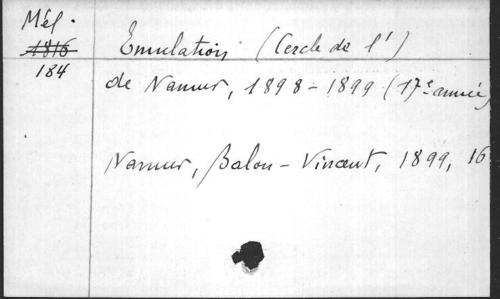 Mél.
1816
184
Emulation (Cercle de l')
de Namur, 1898-1899 (17e année)
Namur, Balon-Vincent, 1899, 16